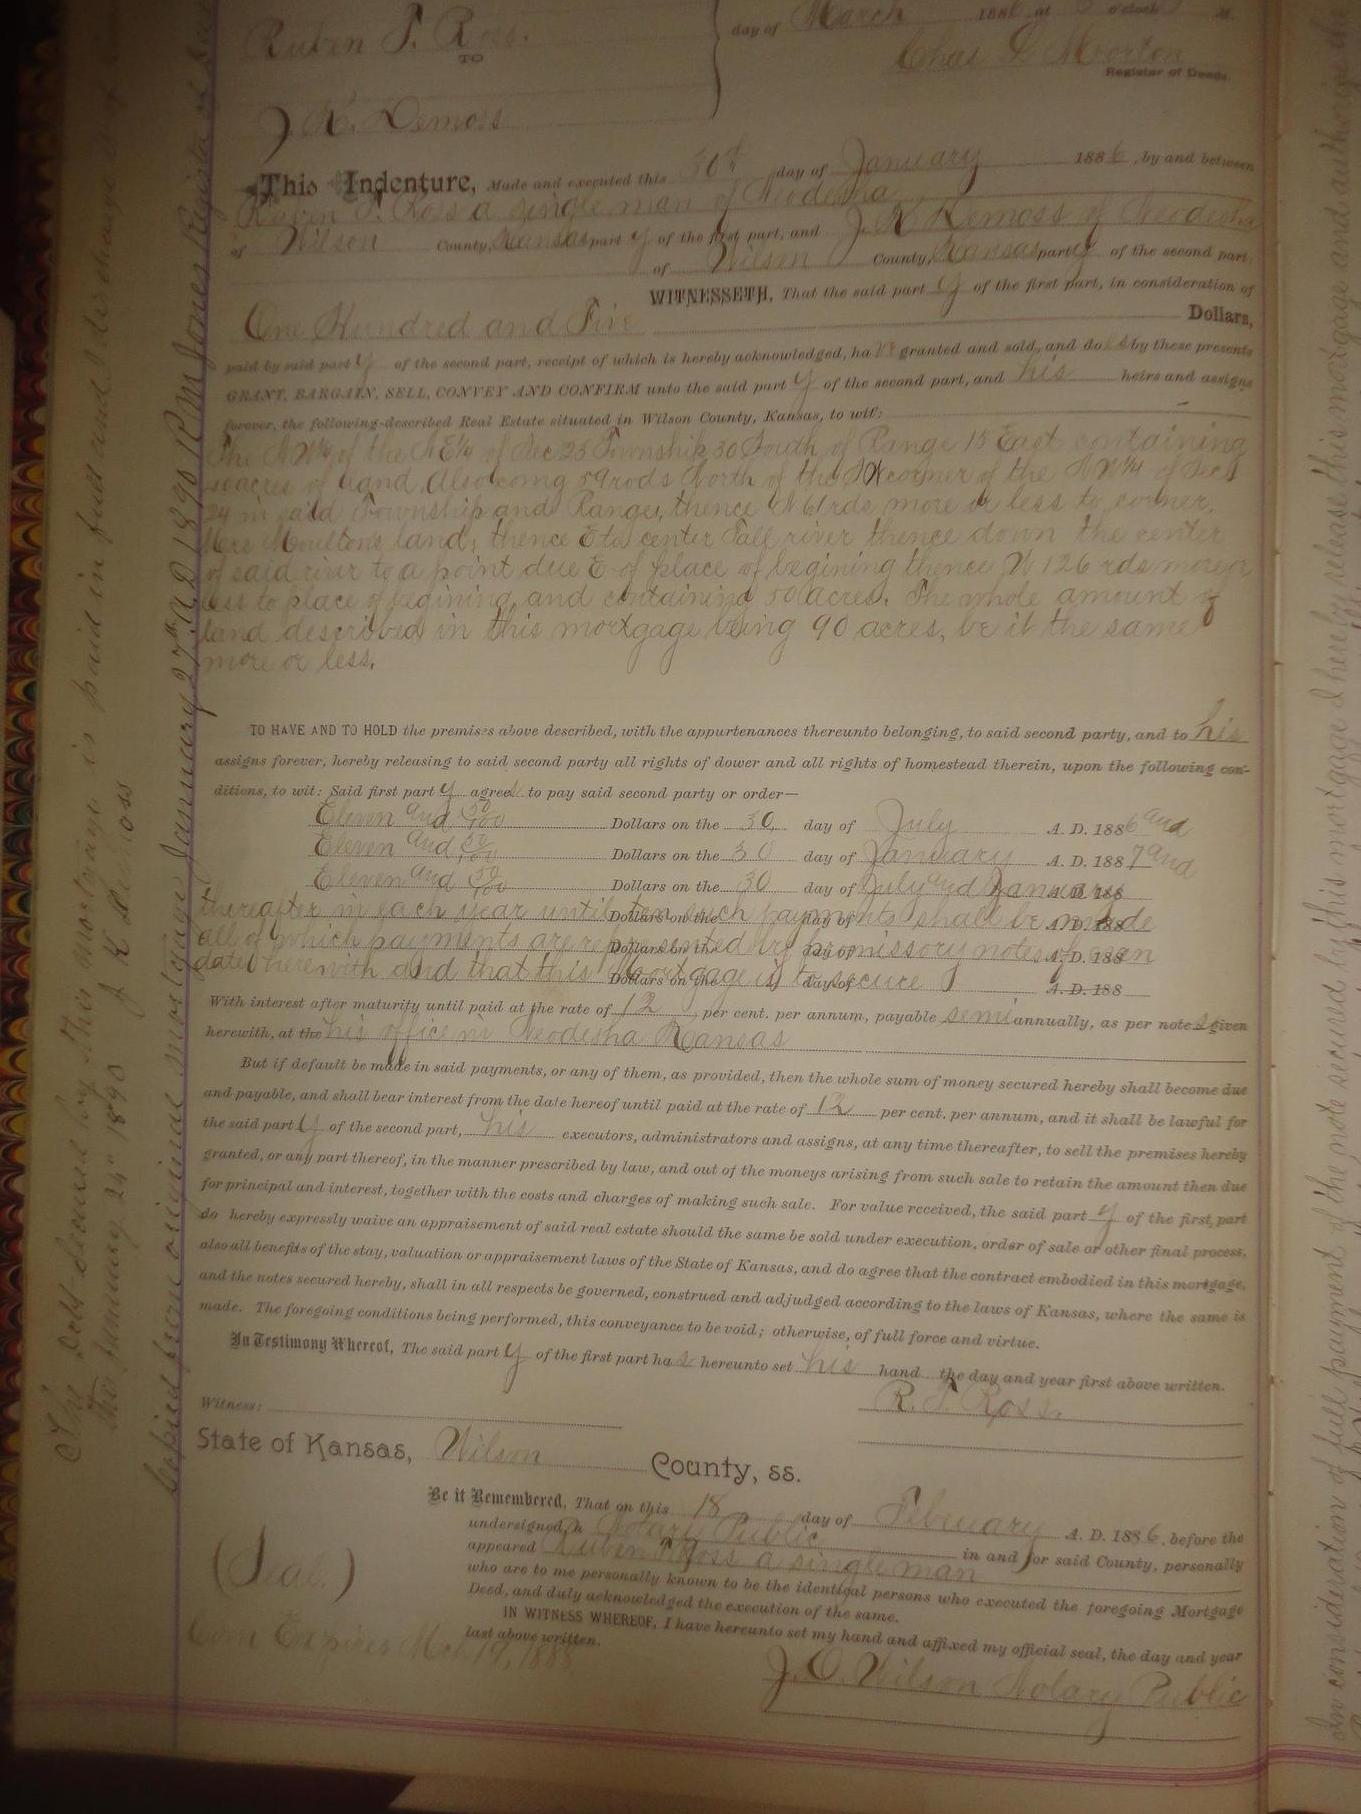 Ruben T. Ross.
TO
J. K. Demoss
day of March 1886 at o'clock M.
Chas L Morton
Register of Deeds.
This Indenture, Made and executed this 30th day of January 1886, by and between
Ruben T. Ross a single man of Neodesha
of Wilson County, Kansas part y of the first part, and J. K. Demoss of Neodesha
of Wilson County, Kansas party of the second part:
WITNESSETH, That the said part y of the first part, in consideration of
One Hundred and Five Dollars,
paid by said part y of the second part, receipt of which is hereby acknowledged, ha ve granted and sold, and do es by these presents
GRANT, BARGAIN, SELL, CONVEY AND CONFIRM unto the said part y of the second part, and his heirs and assigns
forever, the following-described Real Estate situated in Wilson County, Kansas, to wit:
The NW¼ of the NE¼ of Sec 25 Township 30 South of Range 15 East containing
acres of land. Also comg 59 rods North of the corner of the NW¼ of Sec
24 in said Township and Range, thence N 61 rds more or less to corner.
Mrs Moultons land, thence E to center Fall river thence down the center
of said river to a point due E of place of begining thence W 126 rds more or
less to place of begining and containing 50 acres. The whole amount of
land described in this mortgage being 90 acres, be it the same
more or less.
TO HAVE AND TO HOLD the premises above described, with the appurtenances thereunto belonging, to said second party, and to his
assigns forever, hereby releasing to said second party all rights of dower and all rights of homestead therein, upon the following con-
ditions, to wit: Said first part y agrees to pay said second party or order—
Eleven and 50/100 Dollars on the 30 day of July A. D. 1886 and
Eleven and 50/100 Dollars on the 30 day of January A. D. 1887 and
Eleven and 50/100 Dollars on the 30 day of July and January A. D. 188
thereafter in each year until ten such payments shall be made
all of which payments are represented by promissory notes of even
date herewith and that this mortgage is to secure
With interest after maturity until paid at the rate of 12 per cent. per annum, payable semi annually, as per note s given
herewith, at the his office in Neodesha Kansas
But if default be made in said payments, or any of them, as provided, then the whole sum of money secured hereby shall become due
and payable, and shall bear interest from the date hereof until paid at the rate of 12 per cent. per annum, and it shall be lawful for
the said part y of the second part, his executors, administrators and assigns, at any time thereafter, to sell the premises hereby
granted, or any part thereof, in the manner prescribed by law, and out of the moneys arising from such sale to retain the amount then due
for principal and interest, together with the costs and charges of making such sale. For value received, the said part y of the first part
do hereby expressly waive an appraisement of said real estate should the same be sold under execution, order of sale or other final process,
also all benefits of the stay, valuation or appraisement laws of the State of Kansas, and do agree that the contract embodied in this mortgage,
and the notes secured hereby, shall in all respects be governed, construed and adjudged according to the laws of Kansas, where the same is
made. The foregoing conditions being performed, this conveyance to be void; otherwise, of full force and virtue.
In Testimony Whereof, The said part y of the first part ha s hereunto set his hand the day and year first above written.
R. T. Ross.
Witness:
State of Kansas, Wilson County, ss.
Be it Remembered, That on this 18 day of February A. D. 1886, before the
undersigned, a Notary Public in and for said County, personally
appeared Ruben T Ross a single man
who are to me personally known to be the identical persons who executed the foregoing Mortgage
Deed, and duly acknowledged the execution of the same.
IN WITNESS WHEREOF, I have hereunto set my hand and affixed my official seal, the day and year
last above written.
(Seal.)
Com Expires Mch 19, 1888
J. O. Wilson Notary Public
The debt secured by this mortgage is paid in full and I discharge
the January 24 1890 J K Demoss
Copied from original mortgage January 27th A.D. 1890 Jones Register of
In consideration of full payment of the note secured by this mortgage I hereby release this mortgage and authorize the